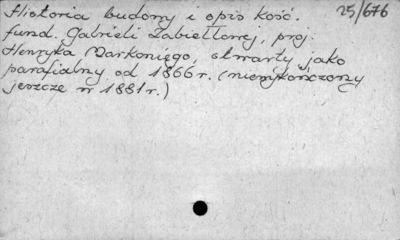 Historia budowy i opis kość. 25/676
fund. Gabrieli Zabiełłowej, proj.
Henryka Markoniego, otwarty jako
parafialny od 1866 r. (niewykończony
jeszcze w 1881 r.)